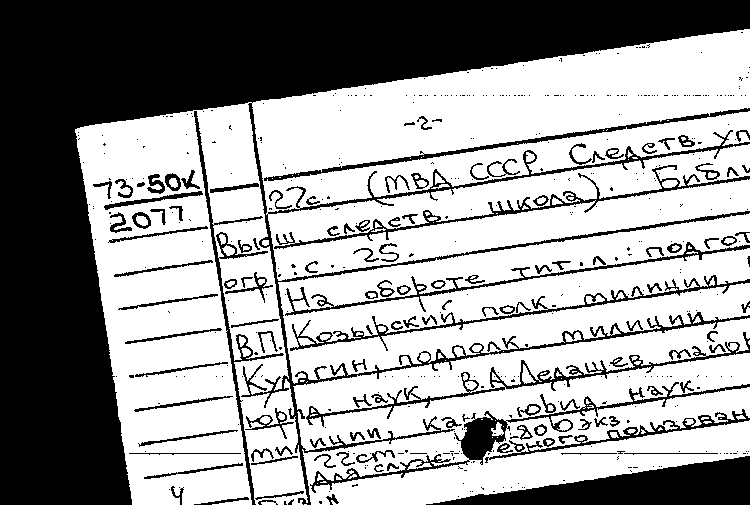 -2-
73-50К
2077
27с. (МВД СССР. Следств. уп
Высш. следств. школа). Библи
огр.: с. 25.
На обороте тит.л.: подгот
В.П. Козырский, полк. милиции,
Кулагин, подполк. милиции, к
юрид. наук, В.А. Ледащев, майор
милиции, канд. юрид. наук.
22см. 200 экз.
Для служебного пользован
ч